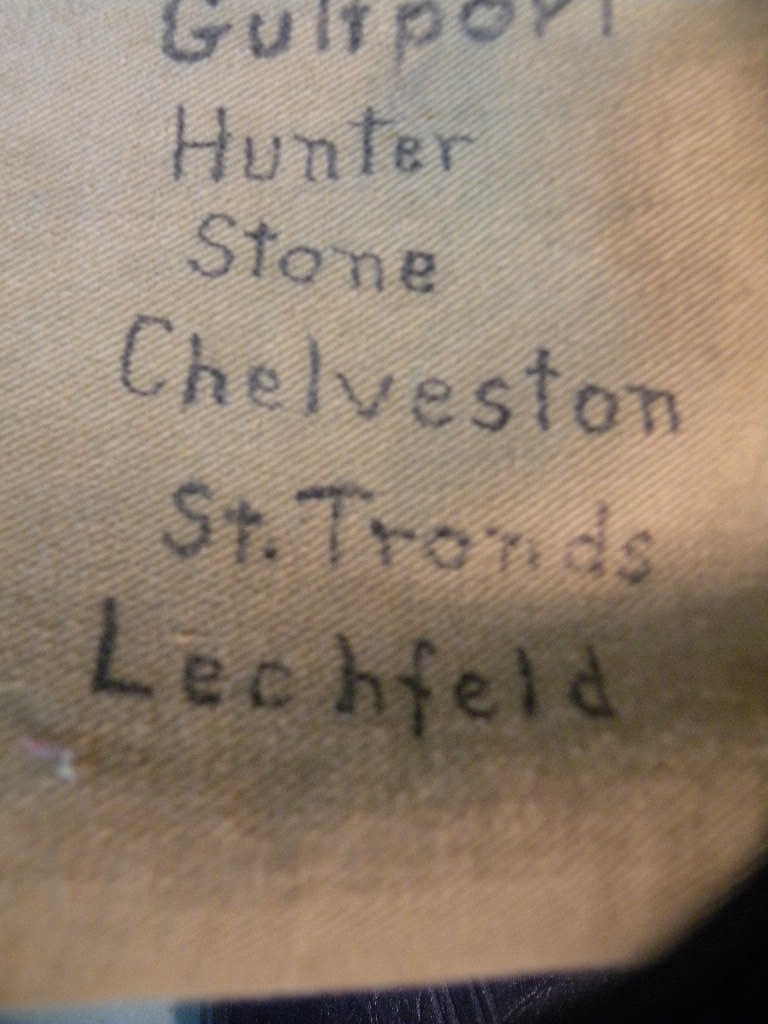 Gulfport
Hunter
Stone
Chelveston
St. Tronds
Lechfeld